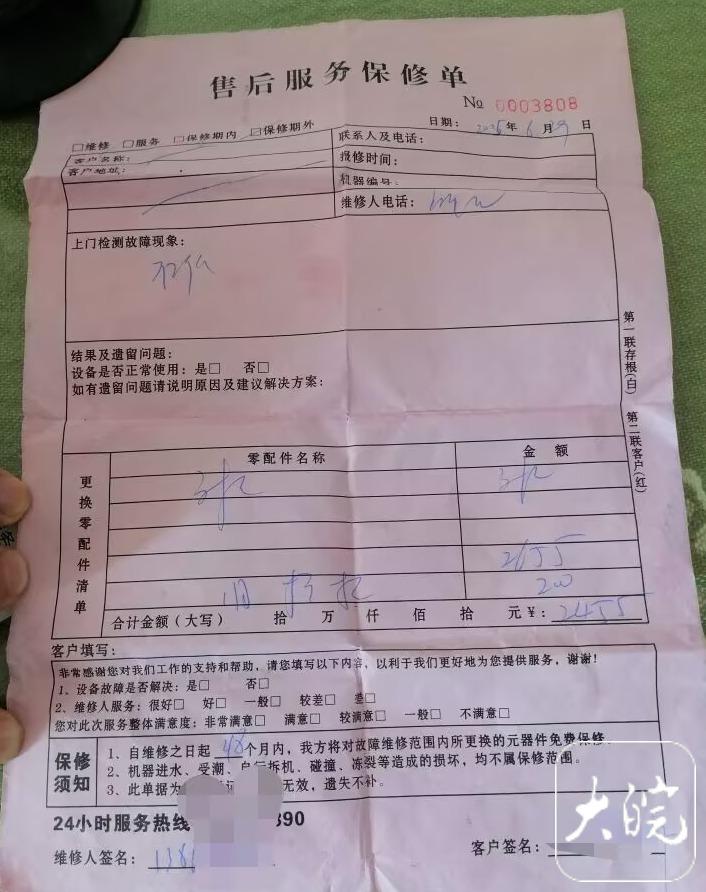 售后服务保修单
№ 0003808
日期: 年 6 月 29 日
□维修 □服务 □保修期内 □保修期外
客户名称:
联系人及电话:
客户地址:
报修时间:
机器编号:
维修人电话:
上门检测故障现象:
结果及遗留问题:
设备是否正常使用: 是□ 否□
如有遗留问题请说明原因及建议解决方案:
第一联存根(白) 第二联客户(红)
更换零配件清单
零配件名称 金额
2655
旧 200
合计金额(大写) 拾 万 仟 佰 拾 元¥: 2455
客户填写:
非常感谢您对我们工作的支持和帮助, 请您填写以下内容, 以利于我们更好地为您提供服务, 谢谢!
1、设备故障是否解决: 是□ 否□
2、维修人服务: 很好□ 好□ 一般□ 较差□ 差□
您对此次服务整体满意度: 非常满意□ 满意□ 较满意□ 一般□ 不满意□
保修须知
1、自维修之日起 48 个月内, 我方将对故障维修范围内所更换的元器件免费保修.
2、机器进水、受潮、自行拆机、碰撞、冻裂等造成的损坏, 均不属保修范围。
3、此单据为 无效, 遗失不补。
24小时服务热线 390
维修人签名: 138
客户签名:
大皖